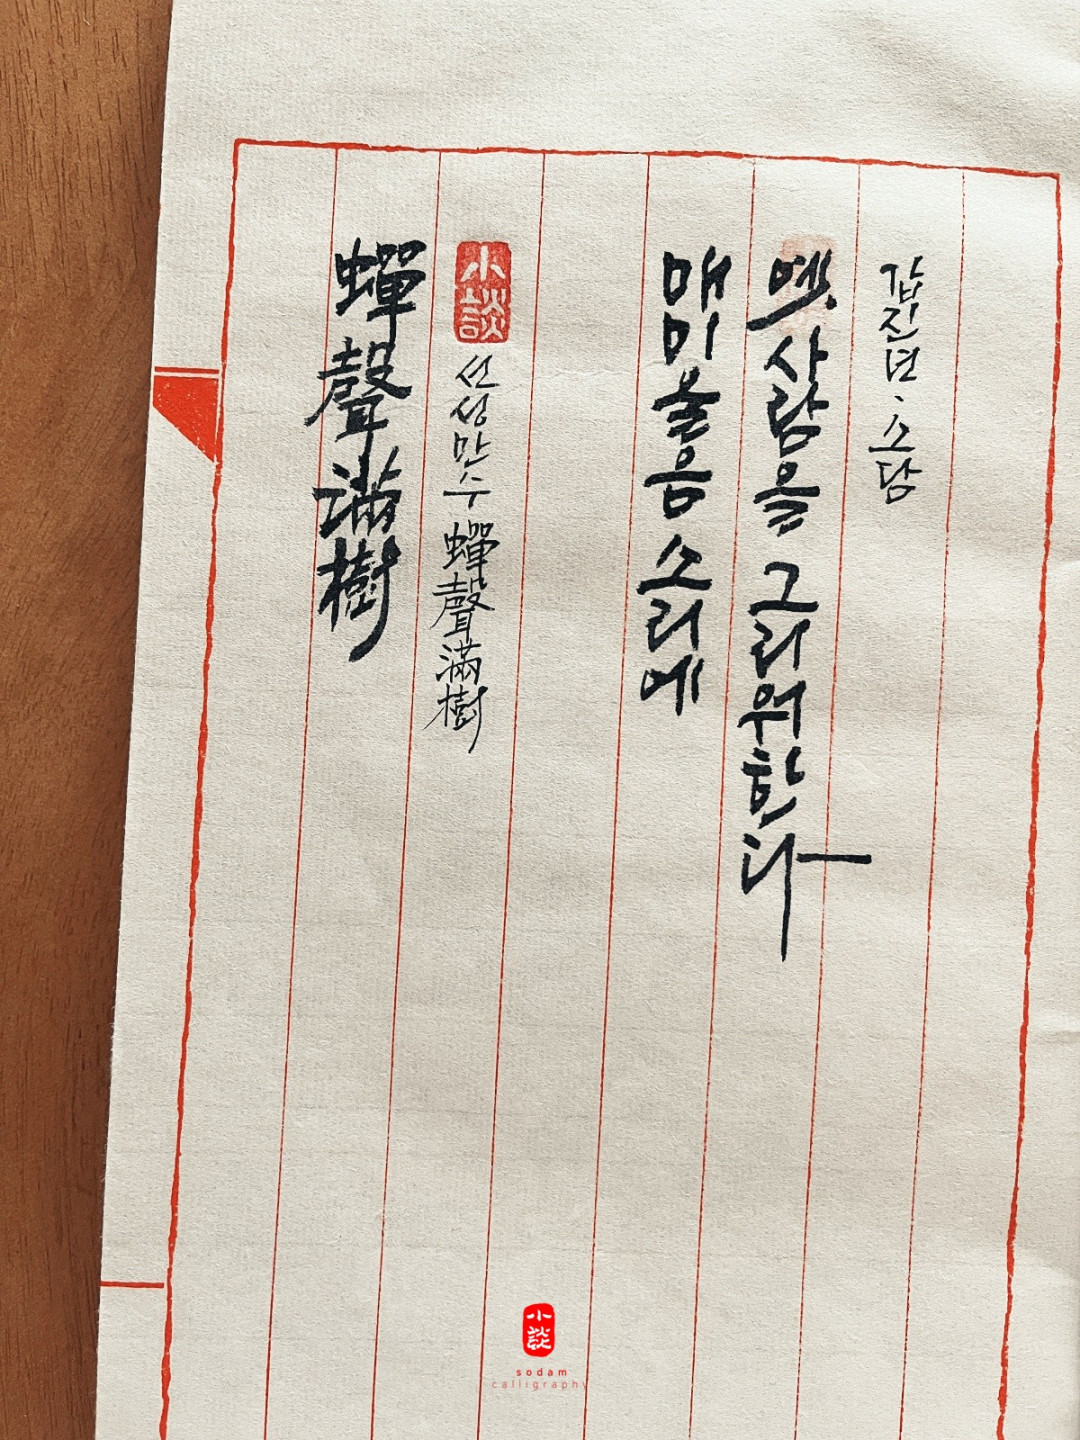 蟬聲滿樹
小談
선성만수 蟬聲滿樹
매미울음 소리에
옛 사람을 그리워한다
갑진년、소담
小談
sodam
calligraphy